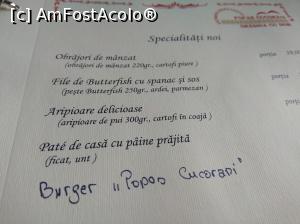 [c] AmFostAcolo®
Specialități noi
Obrăjori de mânzat porție
(obrăjori de mânzat 220gr., cartofi piure)
File de Butterfish cu spanac și sos porție
(pește Butterfish 250gr., ardei, parmezan)
Aripioare delicioase porție
(aripioare de pui 300gr., cartofi în coajă)
Paté de casă cu pâine prăjită
(ficat, unt)
Burger „Popas Cucorani”